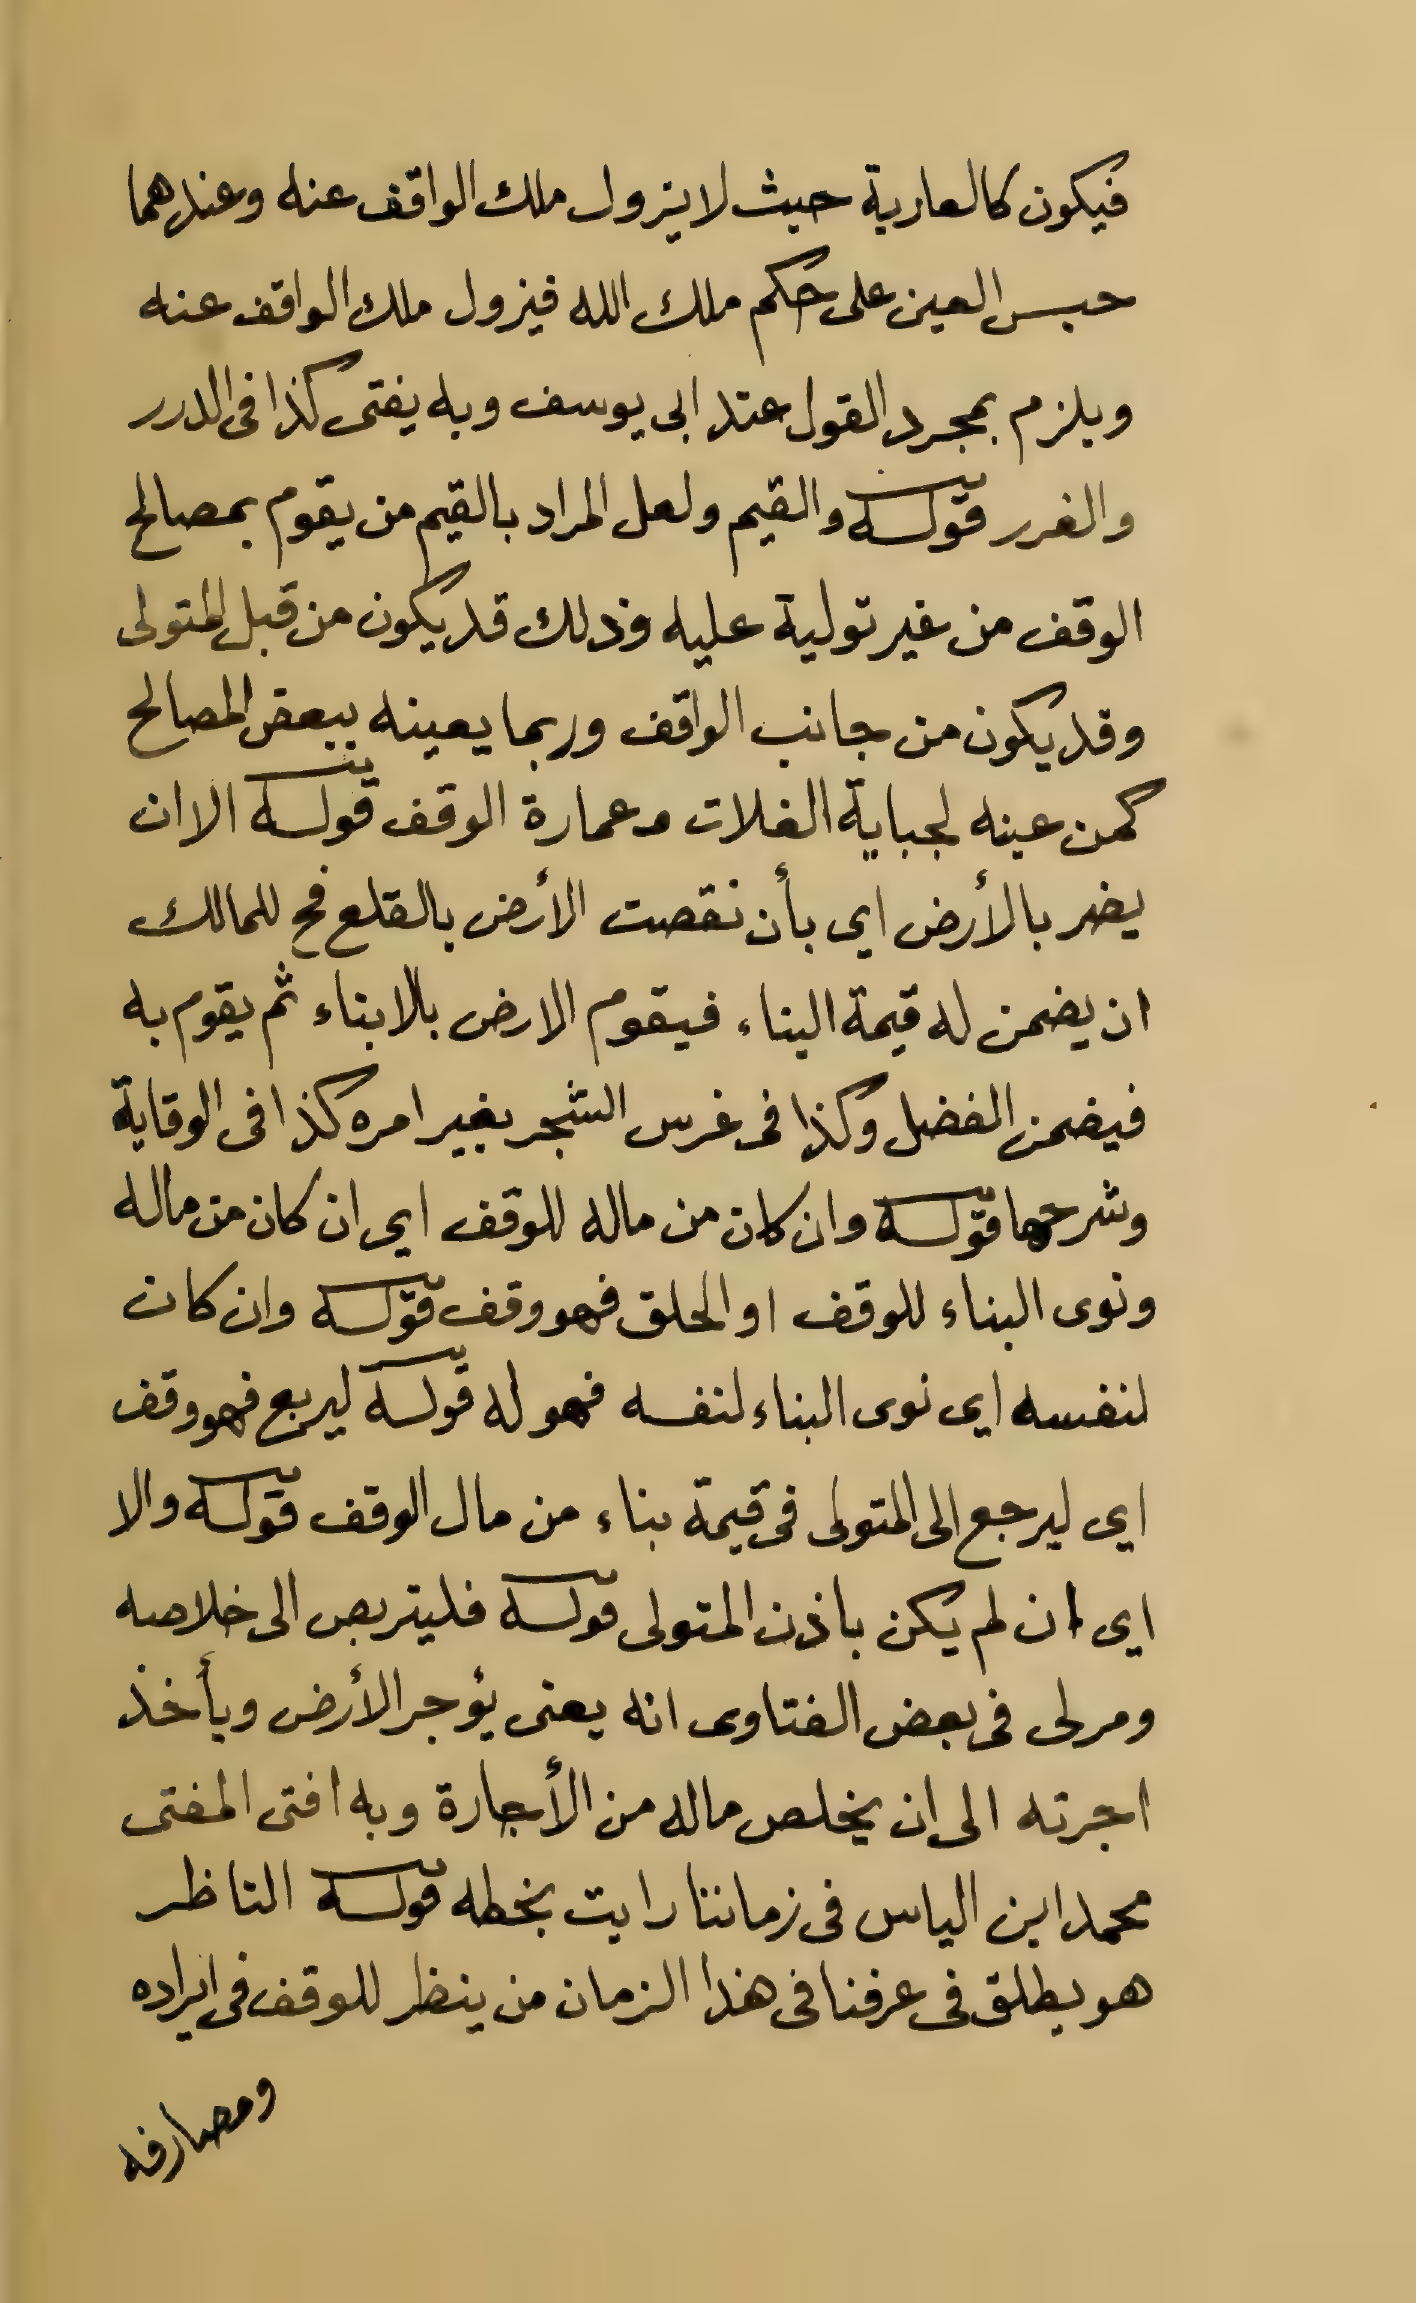 فيكون كالعارية حيث لا يزول ملك الواقف عنه وعندهما
حبس العين على حكم ملك الله فيزول ملك الواقف عنه
ويلزم بمجرد القول عند ابى يوسف وبه يفتى كذا فى الدرر
والغرر قوله والقيم ولعل المراد بالقيم من يقوم بمصالح
الوقف من غير تولية عليه وذلك قد يكون من قبل المتولى
وقد يكون من جانب الواقف وربما يعينه ببعض المصالح
كمن عينه لجباية الغلات وعمارة الوقف قوله الا ان
يضر بالأرض اى بأن نقصت الأرض بالقلع فح للمالك
ان يضمن له قيمة البناء فيقوم الارض بلا بناء ثم يقوم به
فيضمن الفضل وكذا فى غرس الشجر بغير امره كذا فى الوقاية
وشرحها قوله وان كان من ماله للوقف اى ان كان من ماله
ونوى البناء للوقف او الحلق فهو وقف قوله وان كان
لنفسه اى نوى البناء لنفسه فهو له قوله ليربع فهو وقف
اى ليرجع الى المتولى فى قيمة بناء من مال الوقف قوله والا
اى ان لم يكن باذن المتولى قوله فليتربص الى خلاصه
ومر لى فى بعض الفتاوى انه يعنى يؤجر الأرض ويأخذ
اجرته الى ان يخلص ماله من الأجارة وبه افتى المفتى
محمد ابن الياس فى زماننا رايت بخطه قوله الناظر
هو يطلق فى عرفنا فى هذا الزمان من ينظر للوقف فى ايراده
ومصارفه